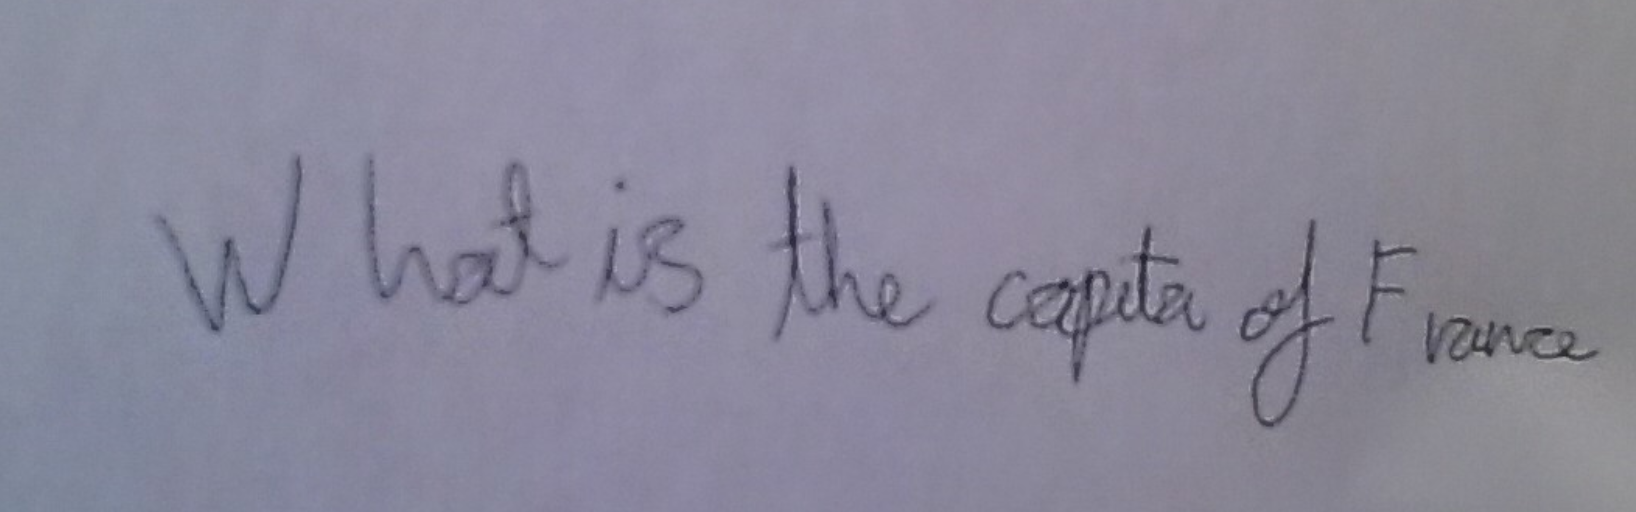 What is the capita of France